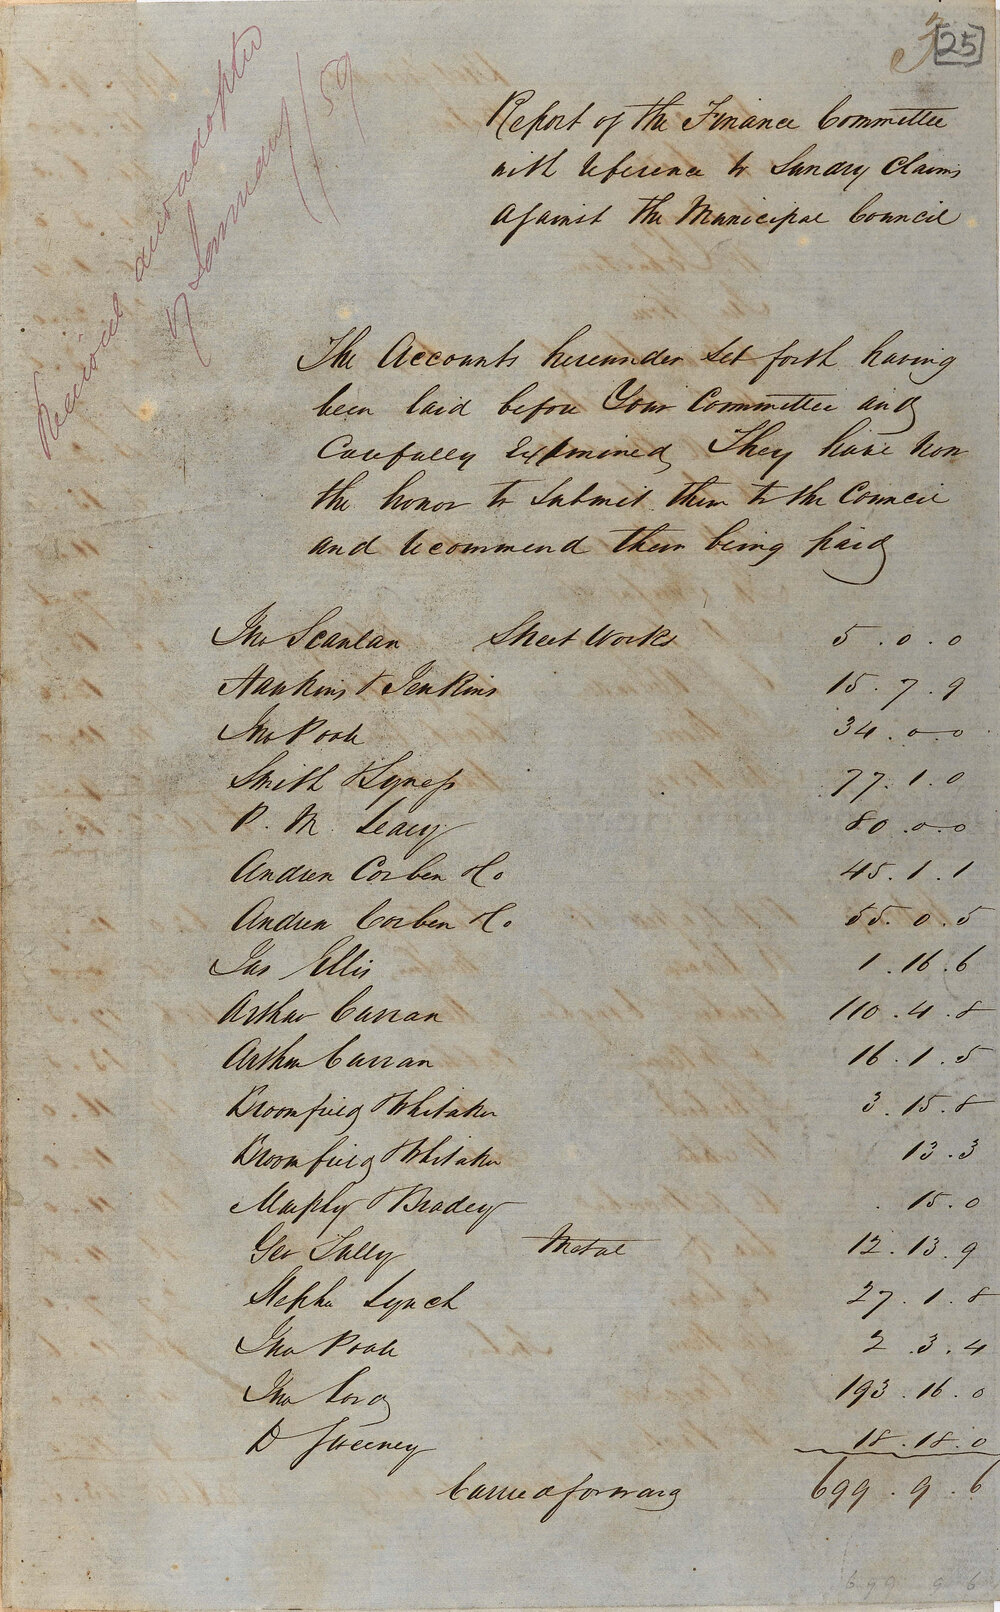 25
Received and adopted
17 January / 59
Report of the Finance Committee
with reference to Sundry Claims
against the Municipal Council
The Accounts hereunder set forth having
been laid before Your Committee and
Carefully Examined, They have now
the honor to Submit them to the Council
and recommend them being paid
Jno Scanlan Street Works 5 . 0 . 0
Hawkins & Jenkins 15 . 7 . 9
Jno Pook 34 . 0 - 0
Smith & Lyness 77 . 1 . 0
P. M. Leary 80 . 0 - 0
Andrew Corben & Co 45 . 1 . 1
Andrew Corben & Co 55 . 0 . 5
Jas Ellis 1 . 16 . 6
Arthur Curran 110 . 4 . 8
Arthur Curran 16 . 1 . 5
Broomfield & Whitaker 3 . 15 . 8
Broomfield & Whitaker 13 . 3
Murphy & Bradey 15 . 0
Geo Lally Metal 12 . 13 . 9
Stephn Lynch 27 . 1 . 8
Jno Pook 2 . 3 . 4
Jno Lord 193 . 16 . 0
D Sweeney 18 . 18 . 0
Carried forward 699 . 9 . 6
679 9 6